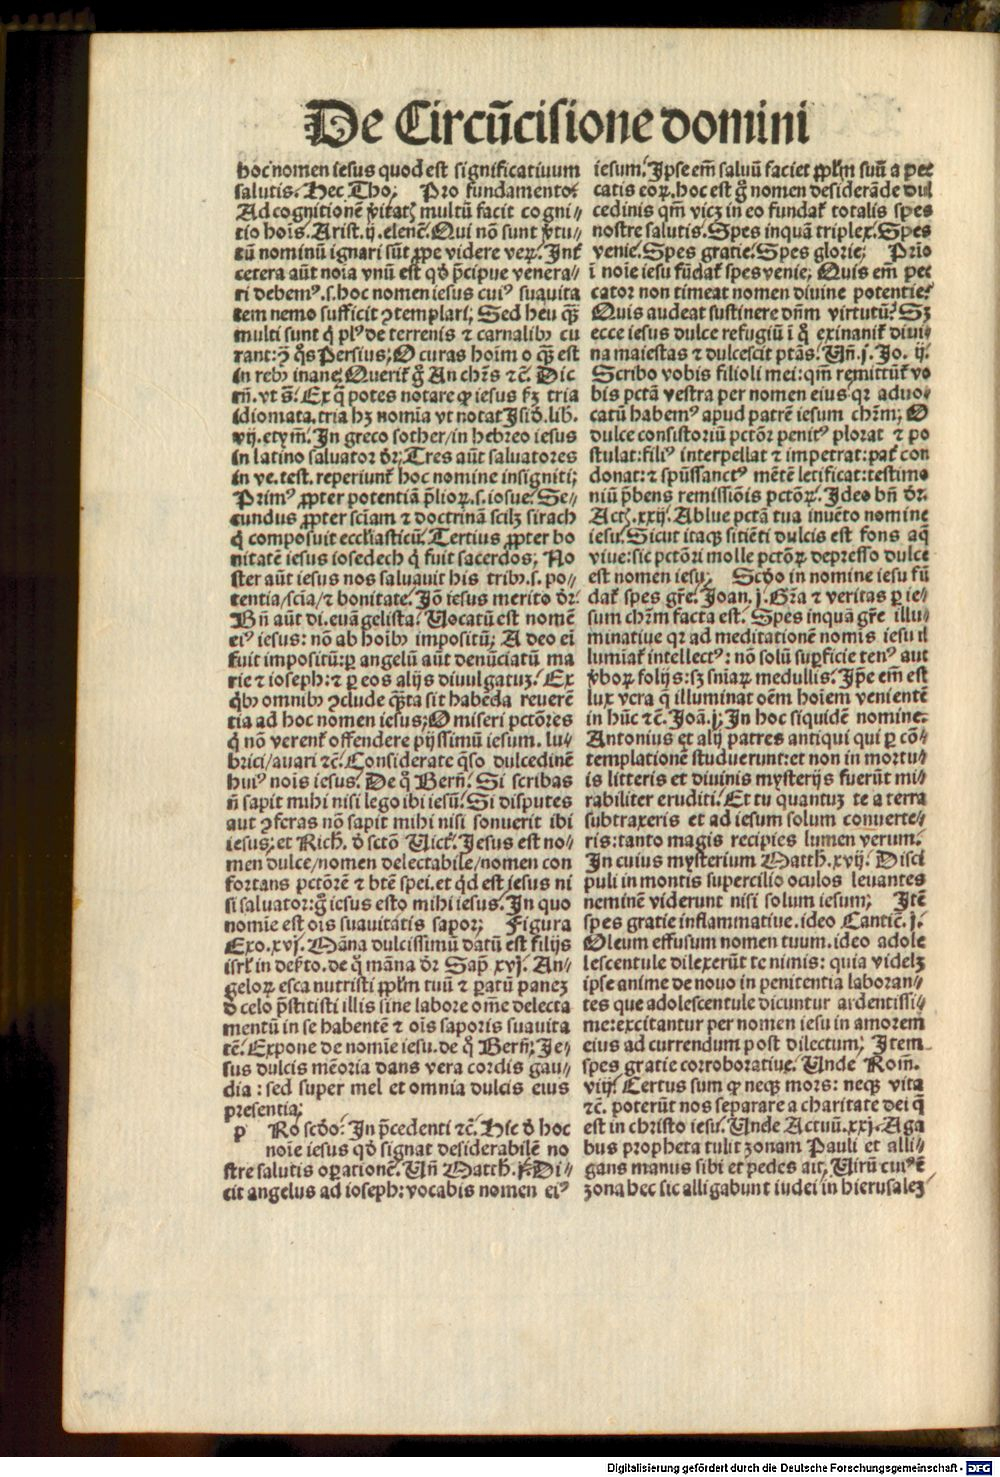 De Circūcisione domini
hoc nomen iesus quod est significatiuum
salutis. Hec Tho. Pro fundamento.
Ad cognitionē v̄itatꝭ multū facit cogni⸗
tio hoīs. Arist. ij. elenc̄. Qui nō sunt v̄tu⸗
tū nominū ignari sūt ꝓpe videre veꝝ. Int̄
cetera aūt noīa vnū est qđ p̄cipue venera⸗
ri debemꝰ .s. hoc nomen iesus cuiꝰ suauita
tem nemo sufficit ꝯtemplari; Sed heu qꝫ̄
multi sunt q̇ plꝰ de terrenis ⁊ carnalibꝫ cu
rant: ꝯ̄ q̊s Persius; O curas hoīm o qꝫ̄ est
in rebꝫ inane. Querit̄ g̊ An chr̄s ⁊c̄. Dic
m̄. vt s̄. Ex q̄ potes notare ꝙ iesus hꝫ tria
idiomata. tria hꝫ nomīa vt notat Isid̄. lib.
vij. etym̄. In greco sother/in hebreo iesus
in latino saluator d̄r; Tres aūt saluatores
in ve. test. reperiunt̄ hoc nomine insigniti;
Primꝰ ꝓpter potentiā p̄lioꝝ .s. iosue. Se⸗
cundus ꝓpter scīam ⁊ doctrinā scilꝫ sirach
q̇ composuit eccl̄iasticū. Tertius ꝓpter bo
nitatē iesus iosedech q̇ fuit sacerdos; No
ster aūt iesus nos saluauit his tribꝫ .s. po⸗
tentia/scīa/⁊ bonitate. Iō iesus merito d̄r.
Bn̄ aūt di. euāgelista. Uocatū est nomē
eiꝰ iesus: nō ab hoībꝫ impositū; A deo eī
fuit impositū: ꝑ angelū aūt denūciatū ma
rie ⁊ ioseph: ⁊ ꝑ eos alijs diuulgatuꝫ. Ex
qͥbꝫ omnibꝫ ꝯclude qꝫ̄ta sit habēda reuerē
tia ad hoc nomen iesus; O miseri pctōres
q̇ nō verent̄ offendere pijssimū iesum. lu⸗
brici/auari ⁊c̄. Considerate q̄so dulcedinē
huiꝰ noīs iesus. De q̊ Bern̄. Si scribas
n̄ sapit mihi nisi lego ibi iesū. Si disputes
aut ꝯferas nō sapit mihi nisi sonuerit ibi
iesus; et Rich. đ sctō Uict̄. Iesus est no⸗
men dulce/nomen delectabile/nomen con
fortans pctōrē ⁊ btē spei. et qͥd est iesus ni
si saluator: g̊ iesus esto mihi iesus. In quo
nomīe est oīs suauitatis sapor; Figura
Exo. xvj. Māna dulcissimū datū est filijs
isrl̄ in dek̄to. de q̊ māna d̄r Sap̄. xvj. An⸗
geloꝝ esca nutristi ppl̄m tuū ⁊ ꝑatū panez
đ celo p̄stitisti illis sine labore om̄e delecta
mentū in se habentē ⁊ oīs saporis suauita
tē. Expone de nomīe iesu. de q̊ Bern̄; Ie⸗
sus dulcis mēoria dans vera cordis gau⸗
dia : sed super mel et omnia dulcis eius
presentia;
p Ro scđo. In p̄cedenti ⁊c̄. Hic đ hoc
noīe iesus qđ signat desiderabilē no
stre salutis oꝑationē. Un̄ Matth. j. Di⸗
cit angelus ad ioseph: vocabis nomen eiꝰ
iesum. Ipse em̄ saluū faciet ppl̄m suū a pec
catis eoꝝ. hoc est g̊ nomen desiderāde dul
cedinis qm̄ vicꝫ in eo fundat̄ totalis spes
nostre salutis. Spes inquā triplex. Spes
venie. Spes gratie. Spes glorie; Prīo
ī noīe iesu fūdat̄ spes venie; Quis em̄ pec
cator non timeat nomen diuine potentie?
Quis audeat sustinere dn̄m virtutū? Sꝫ
ecce iesus dulce refugiū ī q̊ exinanit̄ diui⸗
na maiestas ⁊ dulcescit ptās. Un̄. j. Jo. ij.
Scribo vobis filioli mei: qm̄ remittūt̄ vo
bis pctā vestra per nomen eius qꝛ aduo⸗
catū habemꝰ apud patrē iesum chr̄m; O
dulce consistoriū pctōꝝ penitꝰ plorat ⁊ po
stulat: filiꝰ interpellat ⁊ impetrat: pat̄ con
donat: ⁊ spūssanctꝰ mētē letificat: testimo
niū p̄bens remissiōis pctōꝝ. Ideo bn̄ d̄r.
Actꝭ. xxij. Ablue pctā tua inuēto nomine
iesu. Sicut itaqꝫ sitiēti dulcis est fons aq̄
viue: sic pctōri molle pctōꝝ depresso dulce
est nomen iesu; Scđo in nomine iesu fū
dat̄ spes gr̄e. Joan. j. Gr̄a ⁊ veritas ꝑ ie⸗
sum chr̄m facta est. Spes inquā gr̄e illu⸗
minatiue qꝛ ad meditationē nomīs iesu il
lumīat̄ intellectꝰ: nō solū suꝑficie tenꝰ aut
v̄boꝝ folijs: sꝫ snīaꝝ medullis. Ip̄e em̄ est
lux vera q̄ illuminat oēm hoīem venientē
in hūc ⁊c̄. Joā. j; In hoc siquidē nomine.
Antonius et alij patres antiqui qui ꝑ cō⸗
templationē studuerunt: et non in mortu⸗
is litteris et diuinis mysterijs fuerūt mi⸗
rabiliter eruditi. Et tu quantuꝫ te a terra
subtraxeris et ad iesum solum conuerte⸗
ris: tanto magis recipies lumen verum.
In cuius mysterium Matth. xvij. Disci
puli in montis supercilio oculos leuantes
neminē viderunt nisi solum iesum; Itē
spes gratie inflammatiue. ideo Cantic̄. j.
Oleum effusum nomen tuum. ideo adole
lescentule dilexerūt te nimis: quia videlꝫ
ipse anime de nouo in penitentia laboran⸗
tes que adolescentule dicuntur ardentissi⸗
me: excitantur per nomen iesu in amorem
eius ad currendum post dilectum; Item
spes gratie corroboratiue. Unde Rom̄.
viij. Certus sum ꝙ neqꝫ mors: neqꝫ vita
⁊c̄. poterūt nos separare a charitate dei q̄
est in christo iesu. Unde Actuū. xxj. Aga
bus propheta tulit zonam Pauli et alli⸗
gans manus sibi et pedes ait, Uirū cuiꝰ ē
zona hec sic alligabunt iudei in hierusalez
Digitalisierung gefördert durch die Deutsche Forschungsgemeinschaft - DFG